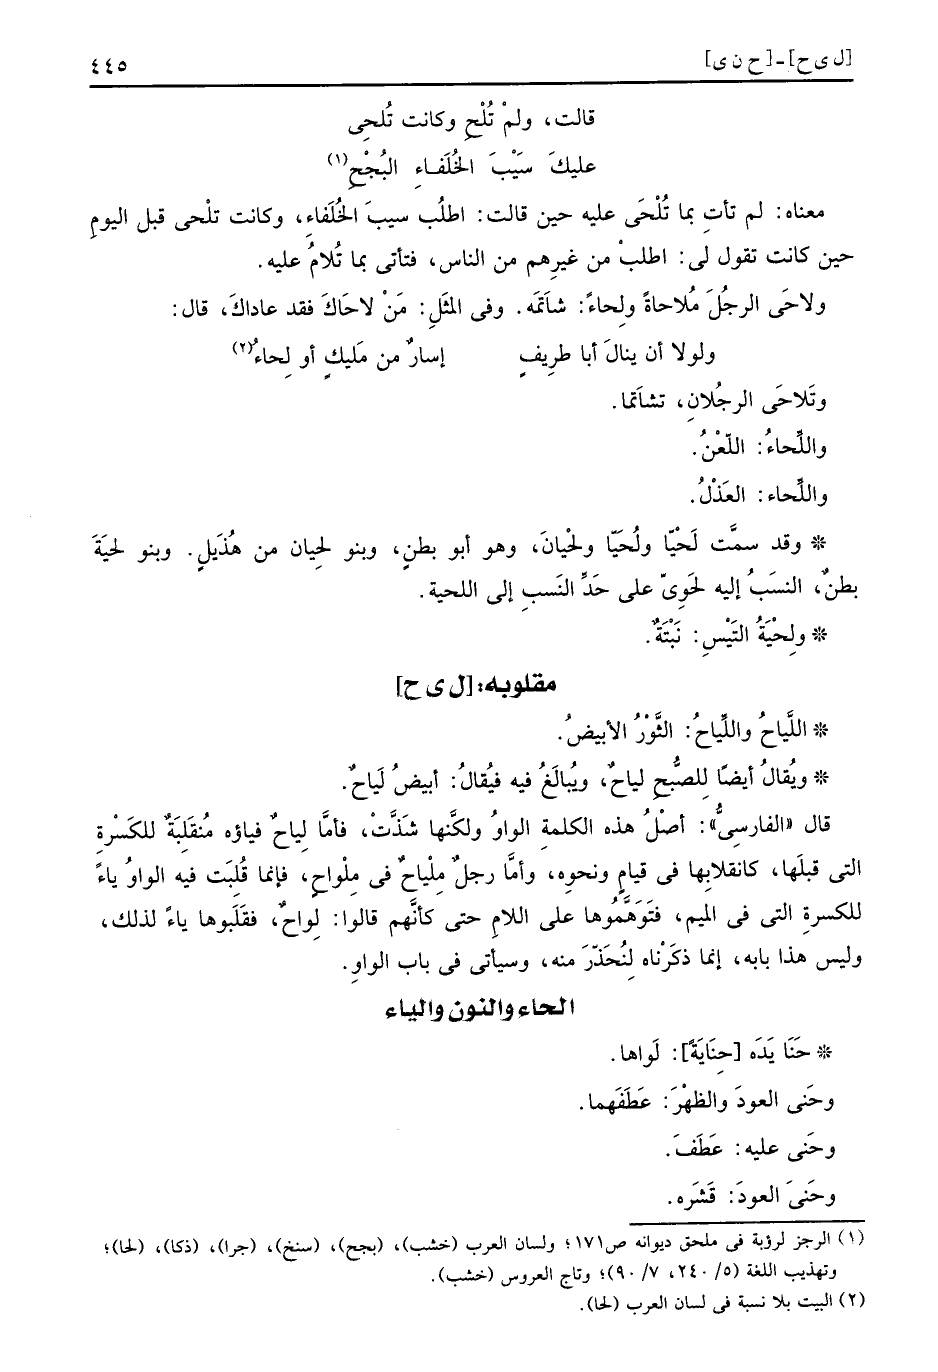 [ل ی ح]-[ح ن ی]
٤٤٥
قالت، ولمْ تُلْحِ وكانت تُلحِى
عليكَ سَيْبَ الخُلَفاءِ البُجْحِ(١)
معناه: لم تأتِ بما تُلْحَى عليه حين قالت: اطلُب سيبَ الخُلَفاء، وكانت تلْحى قبل اليومِ
حين كانت تقول لى: اطلبْ من غيرِهم من الناس، فتأتى بما تُلامُ عليه.
ولاحَى الرجُلَ مُلاحاةً ولِحاءً: شاتَمَه. وفى المثَلِ: مَنْ لاحَاكَ فقد عاداكَ، قال:
ولولا أن ينالَ أبا طرِيفٍ إسارٌ من مَليكٍ أو لِحاءُ(٢)
وتَلاحَى الرجُلانِ، تشاتَما.
واللِّحاءُ: اللّعْنُ.
واللِّحاء: العَذْلُ.
* وقد سمَّت لَحْيًا ولُحَيّا ولِحْيانَ، وهو أبو بطنٍ، وبنو لِحيان من هُذَيلٍ. وبنو لِحيَةَ
بطنٌ، النسَبُ إليه لِحَوِىّ على حَدِّ النَسبِ إلى اللحية.
* ولِحْيَةُ التَيْسِ: نَبْتَةٌ.
مقلوبه: [ل ی ح]
* اللَّياحُ واللِّياحُ: الثَّوْرُ الأبيضُ.
* ويُقالُ أيضًا لِلصُّبحِ لياحٌ، ويُبالَغُ فيه فيُقالُ: أبيضُ لَياحٌ.
قال «الفارسىُّ»: أصْلُ هذه الكلمة الواوُ ولكنَّها شذَّتْ، فأمَّا لِياحٌ فياؤه مُنقَلِبَةٌ للكَسْرةِ
التى قبلَها، كانقلابِها فى قيامٍ ونحوِه، وأمَّا رجلٌ مِلْياحٌ فى مِلْواحٍ، فإنما قُلِبَت فيه الواوُ ياءً
للكسرةِ التى فى الميم، فتَوَهَّمُوها على اللامِ حتى كأنَّهم قالوا: لِواحٌ، فقَلَبوها ياءً لذلك،
وليس هذا بابه، إنما ذكَرْناه لِنُحَذّرَ منه، وسيأتى فى باب الواوِ.
الحاء والنون والياء
* حَنَا يَدَه [حِنَايَةً]: لَواها.
وحَنى العودَ والظهْرَ: عَطَفَهما.
وحَنى عليه: عَطَفَ.
وحَنىَ العودَ: قَشَره.
(١) الرجز لرؤبة فى ملحق ديوانه ص١٧١؛ ولسان العرب (خشب)، (بجح)، (سنخ)، (جرا)، (ذكا)، (لحا)؛
وتهذيب اللغة (٥/ ٢٤٠، ٧/ ٩٠)؛ وتاج العروس (خشب).
(٢) البيت بلا نسبة فى لسان العرب (لحا).